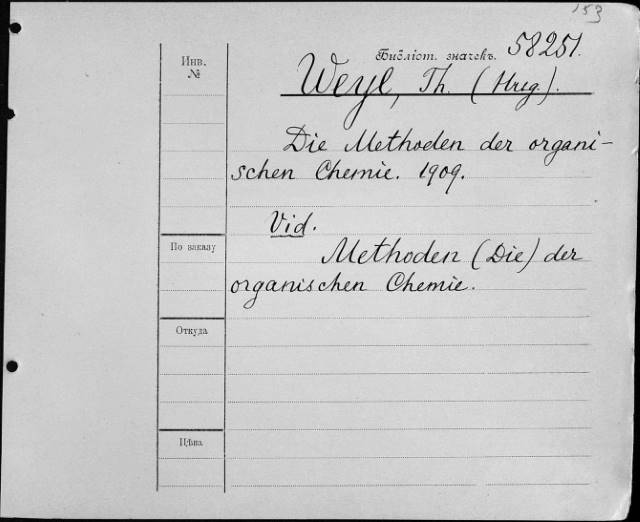 153
Библіот. значекъ. 58251.
Инв.
№
Weyl, Th. (Hrsg.).
Die Methoden der organi-
schen Chemie. 1909.
Vid.
По заказу
Methoden (Die) der
organischen Chemie.
Откуда
Цѣна